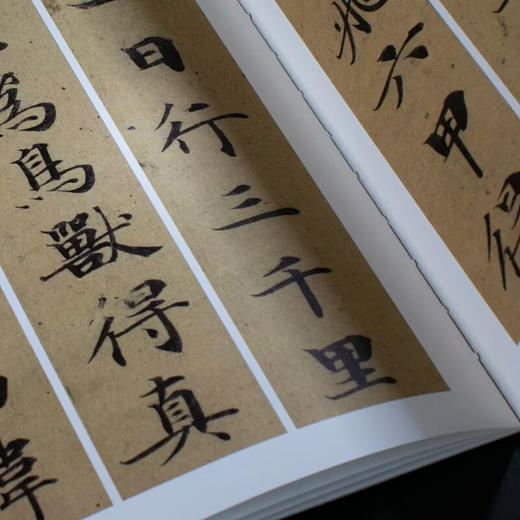 六甲得
日行三千里
鳥獸得真